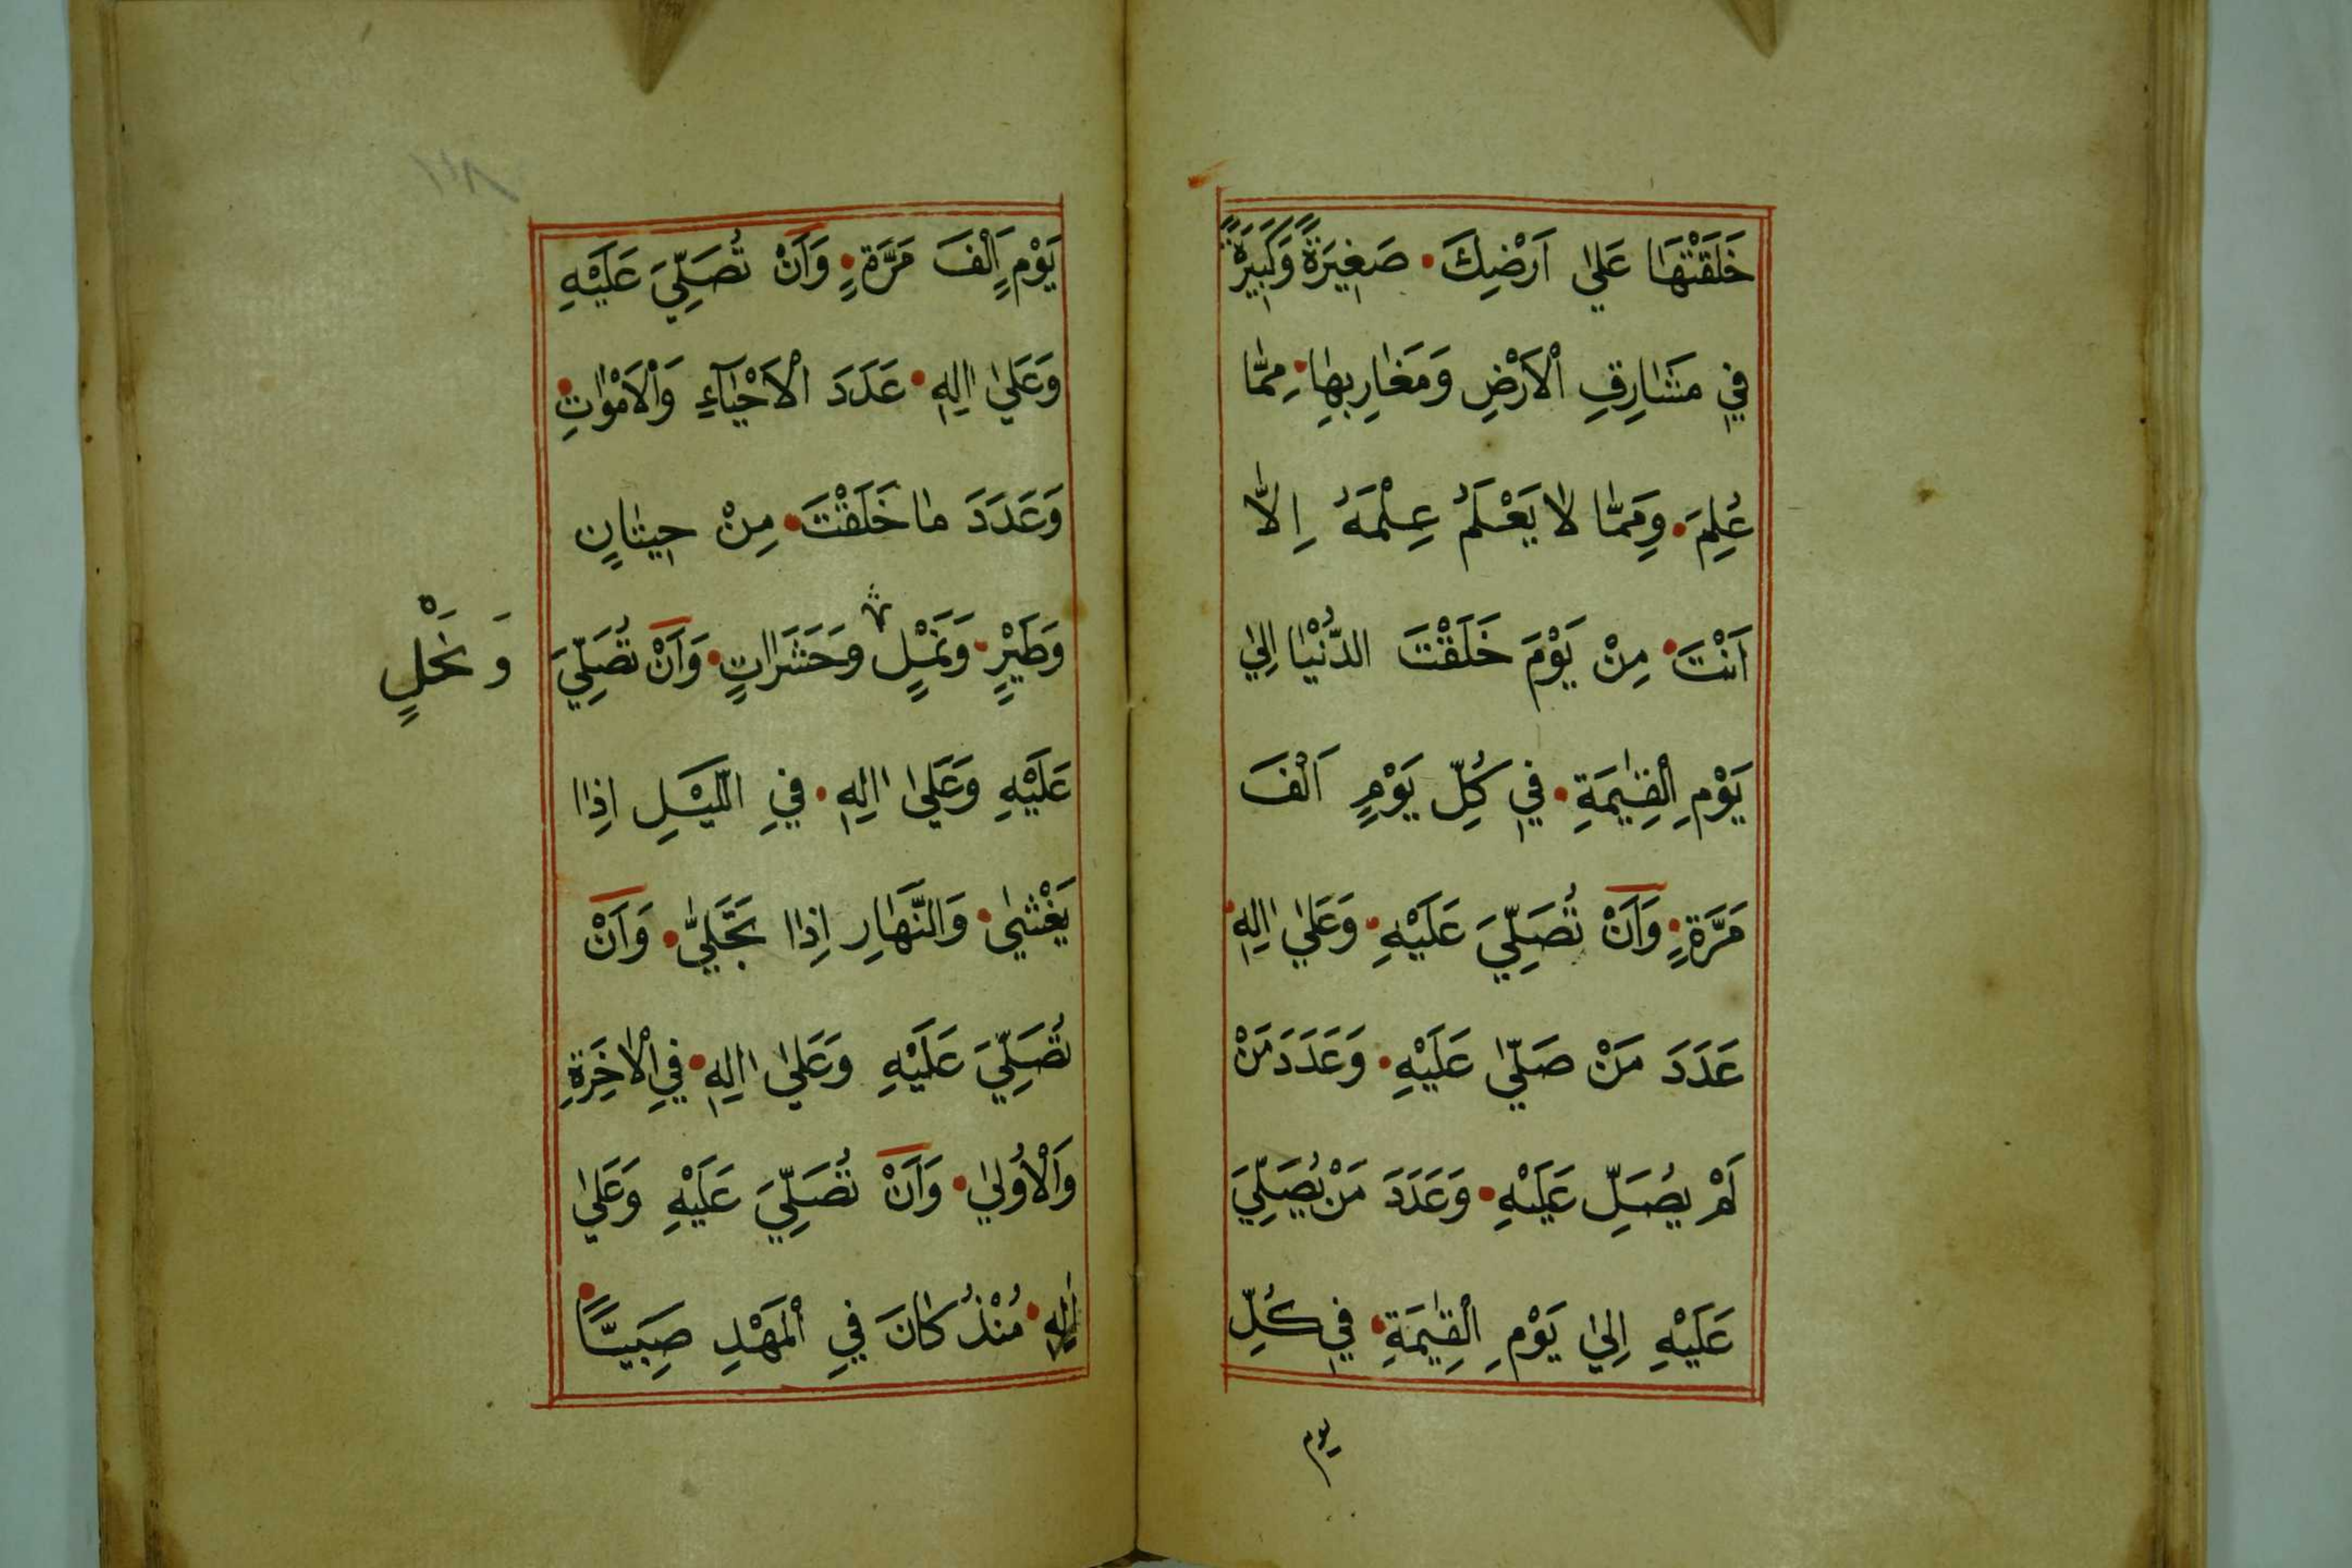 خَلَقْتَهَا عَلَى اَرْضِكَ • صَغِيرَةً وَكَبِيرَةً
فِي مَشَارِقِ الْاَرْضِ وَمَغَارِبِهَا • مِمَّا
عُلِمَ • وَمِمَّا لَا يَعْلَمُ عِلْمَهُ اِلَّا
اَنْتَ • مِنْ يَوْمَ خَلَقْتَ الدُّنْيَا اِلٰي
يَوْمِ الْقِيٰمَةِ • فِي كُلِّ يَوْمٍ اَلْفَ
مَرَّةٍ • وَاَنْ تُصَلِّيَ عَلَيْهِ • وَعَلٰي اٰلِهِ •
عَدَدَ مَنْ صَلّٰي عَلَيْهِ • وَعَدَدَ مَنْ
لَمْ يُصَلِّ عَلَيْهِ • وَعَدَدَ مَنْ يُصَلِّيَ
عَلَيْهِ اِلٰي يَوْمِ الْقِيٰمَةِ • فِي كُلِّ
يوم
يَوْمٍ اَلْفَ مَرَّةٍ • وَاَنْ تُصَلِّيَ عَلَيْهِ
وَعَلٰي اٰلِهِ • عَدَدَ الْاَحْيَآءِ وَالْاَمْوَاتِ •
وَعَدَدَ مَا خَلَقْتَ • مِنْ حِيتَانٍ
وَطَيْرٍ • وَنَمْلٍ وَحَشَرَاتٍ • وَاَنْ تُصَلِّيَ
وَنَحْلٍ
عَلَيْهِ وَعَلٰي اٰلِهِ • فِي الَّيْلِ اِذَا
يَغْشٰي • وَالنَّهَارِ اِذَا تَجَلّٰي • وَاَنْ
تُصَلِّيَ عَلَيْهِ وَعَلٰي اٰلِهِ • فِي الْاٰخِرَةِ
وَالْاُولٰي • وَاَنْ تُصَلِّيَ عَلَيْهِ وَعَلٰي
اٰلِهِ • مُنْذُ كَانَ فِي الْمَهْدِ صَبِيًّا •